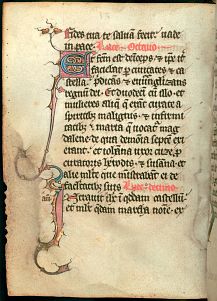 fides tua te saluā fecit. uade
in pace.
Et factū est deinceps. & ip̄e
faciebat p ciuitates & ca
stella. p̄dicās & euuāgelizans
regnū dei. Et duodeci cū illo. et
mulieres aliq̄ que erāt curate a
spiritibȝ malignis & infirmi
tatibȝ. maria q̄ uocat̄ mag
dalene de qua demonia septē exi
erant. et iohāna uxor cuze p
curatoris herodis. & susāna. et
alie multe que ministrabāt ei de
facultatibȝ suis
Intrauit ih̄c ī q̄ddam castellū
et mulier q̄dam martha noīe. ex